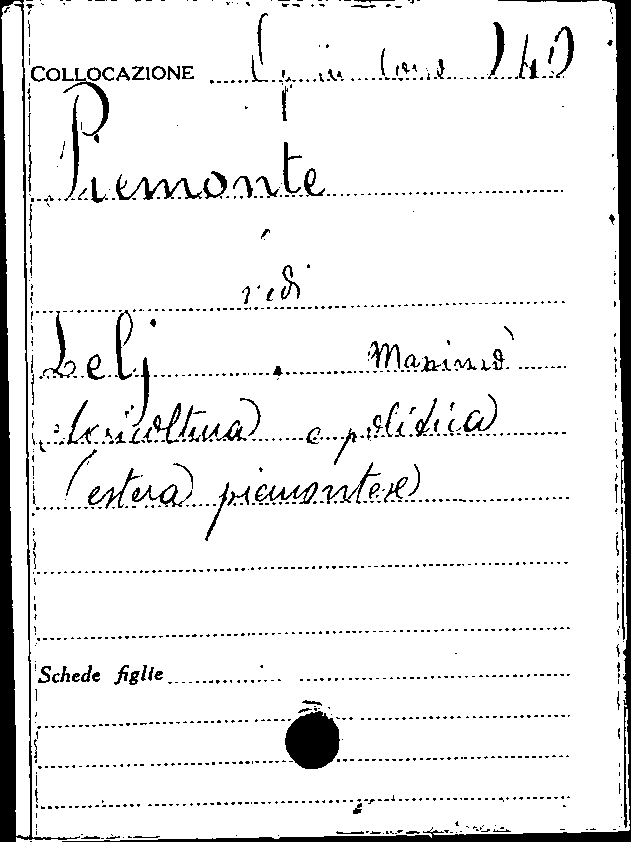 COLLOCAZIONE
Piemonte
vedi
Lelj Massimo
Agricoltura e politica
(estera piemontese)
Schede figlie